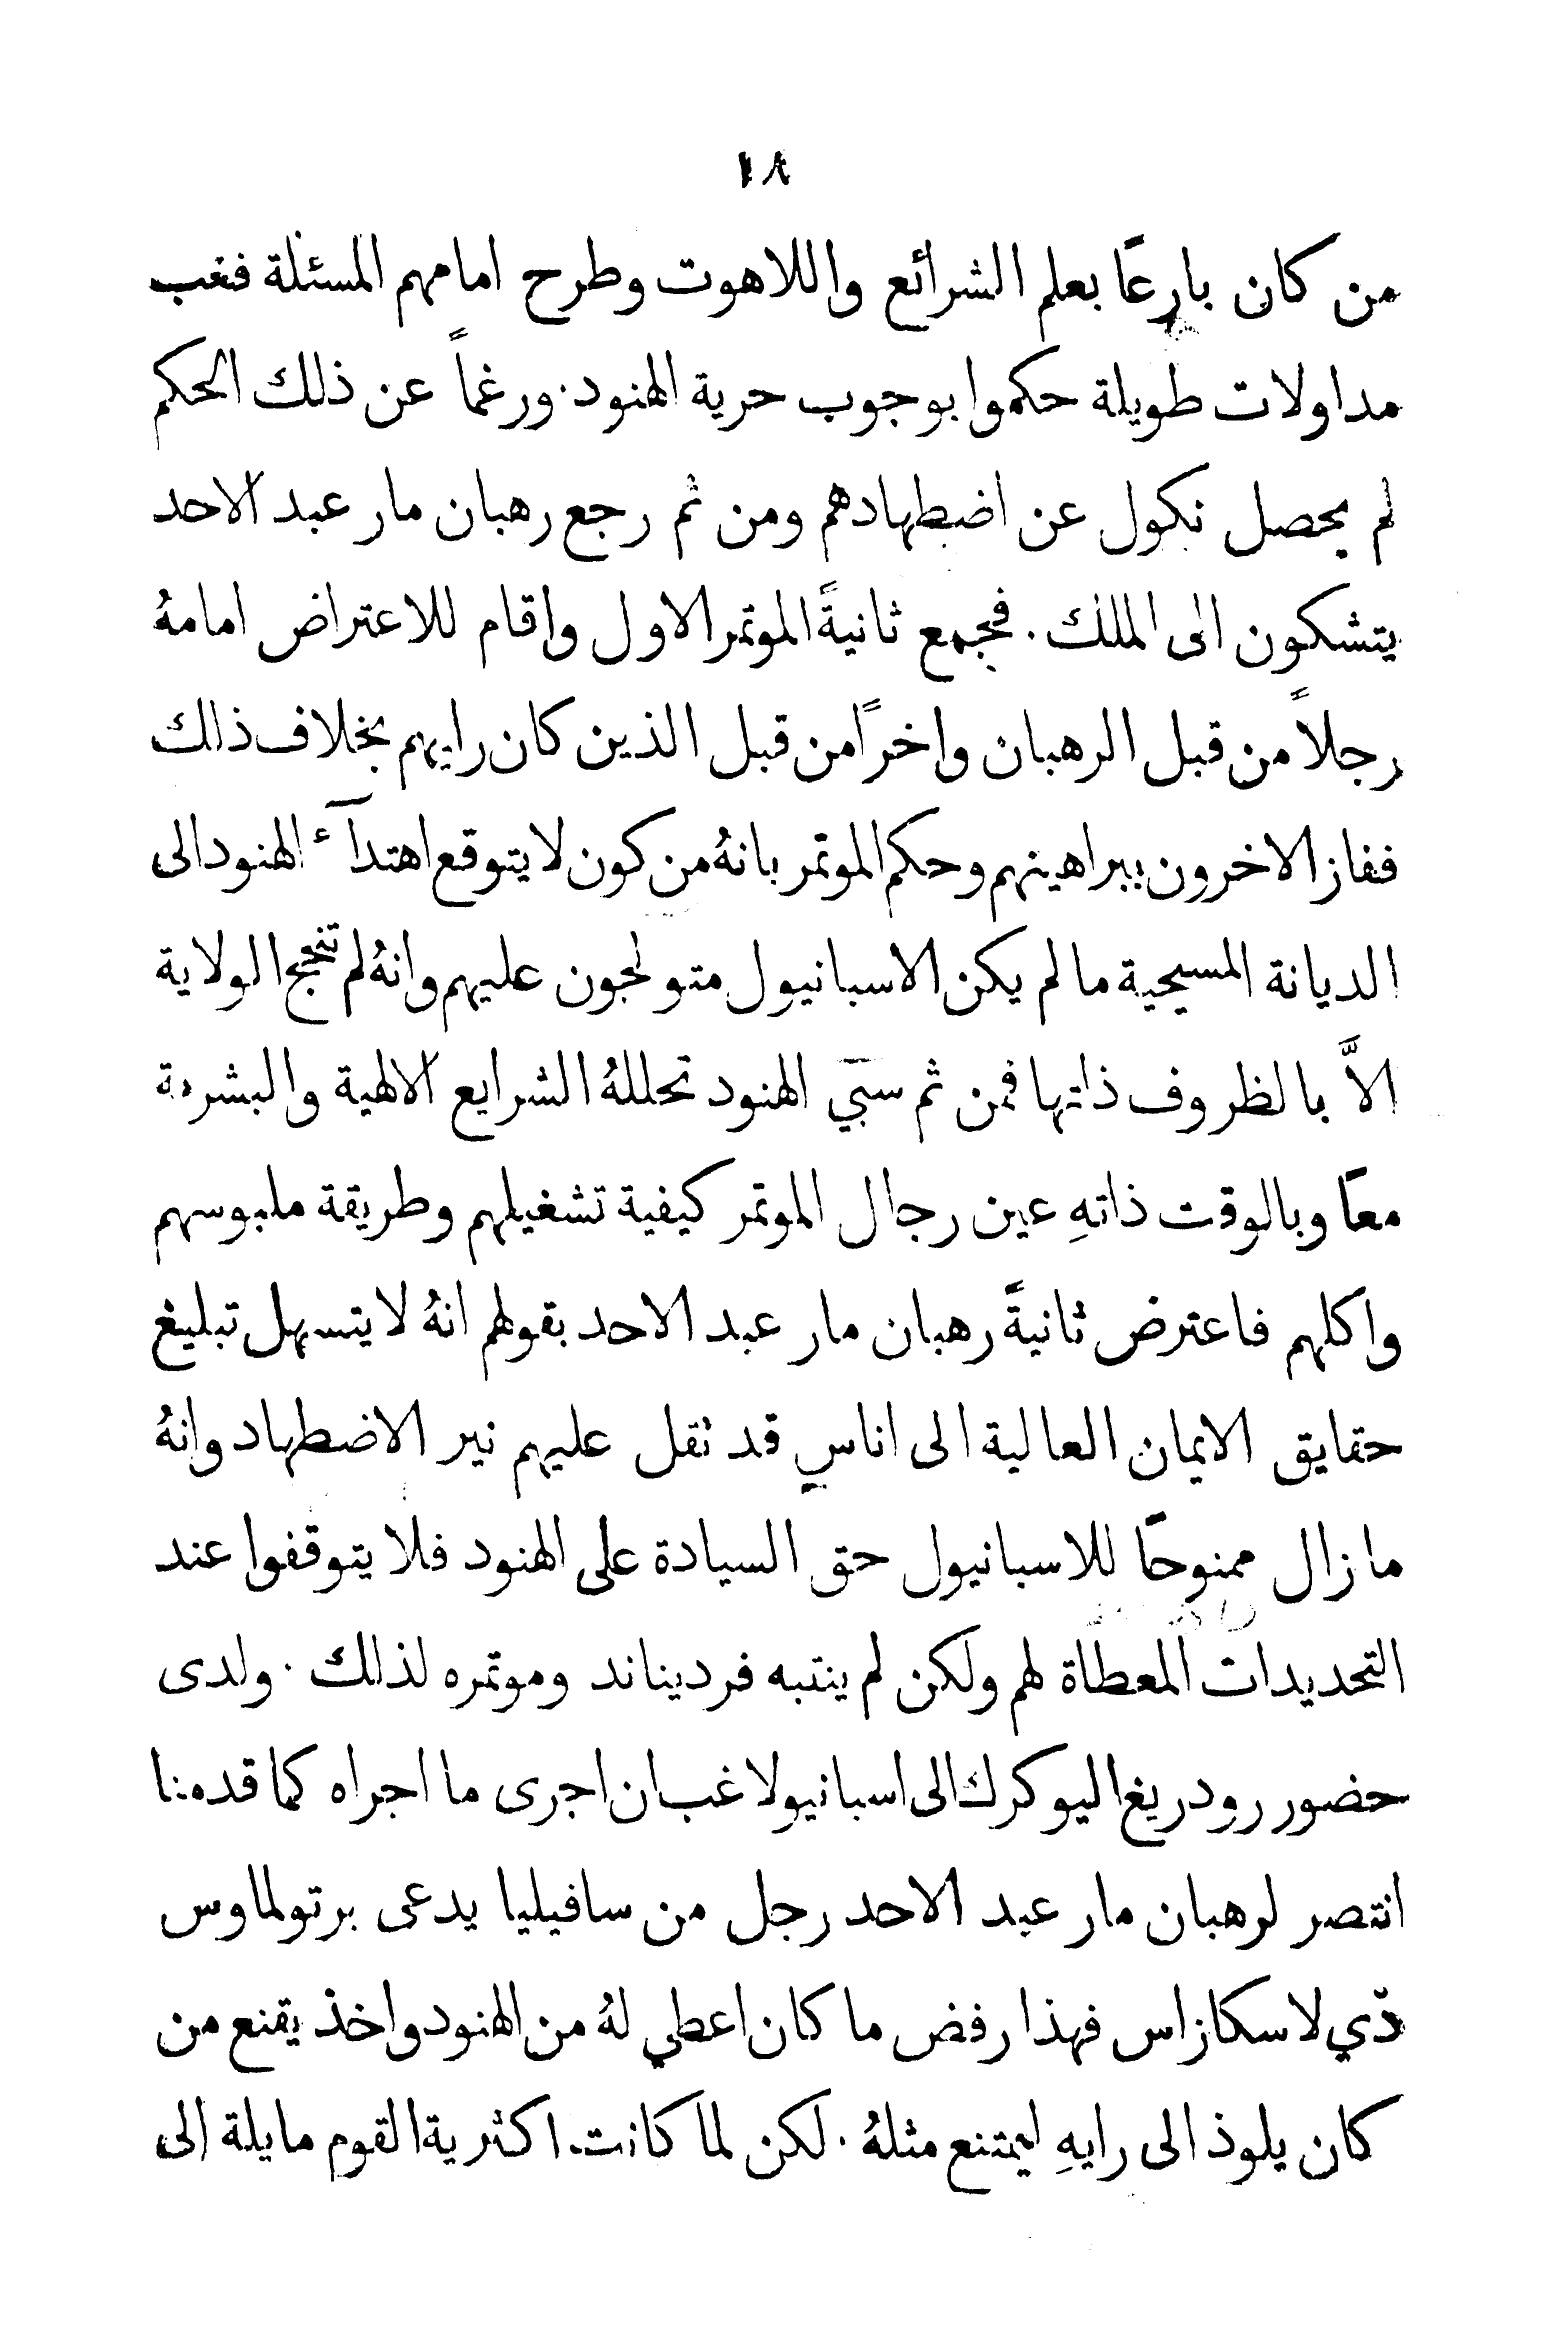 ١٨
من كان بارعًا بعلم الشرائع واللاهوت وطرح امامهم المسئلة فغب
مداولات طويلة حكموا بوجوب حرية الهنود. ورغماً عن ذلك الحكم
لم يحصل نكول عن اضطهادهم ومن ثم رجع رهبان مار عبد الاحد
يتشكون الى الملك. فجمع ثانيةً الموتمر الاول واقام للاعتراض امامهُ
رجلاً من قبل الرهبان واخرًا من قبل الذين كان رايهم بخلاف ذلك
ففاز الاخرون ببراهينهم وحكم الموتمر بانهُ من كون لا يتوقع اهتدآء الهنود الى
الديانة المسيحية ما لم يكن الاسبانيول متولجون عليهم وانهُ لم تنجح الولاية
الاَّ بالظروف ذاتها فمن ثم سبي الهنود تحللهُ الشرايع الالهية والبشرية
معًا وبالوقت ذاتهِ عين رجال الموتمر كيفية تشغيلهم وطريقة ملبوسهم
واكلهم فاعترض ثانيةً رهبان مار عبد الاحد بقولهم انهُ لا يتسهل تبليغ
حقايق الايمان العالية الى اناسٍ قد ثقل عليهم نير الاضطهاد وانهُ
ما زال ممنوحًا للاسبانيول حق السيادة على الهنود فلا يتوقفوا عند
التحديدات المعطاة لهم ولكن لم ينتبه فرديناند وموتمره لذلك. ولدى
حضور رودريغ اليوكرك الى اسبانيولا غب ان اجرى ما اجراه كما قدمنا
انتصر لرهبان مار عبد الاحد رجل من سافيليا يدعى برتولماوس
دي لاسكازاس فهذا رفض ما كان اعطي لهُ من الهنود واخذ يقنع من
كان يلوذ الى رايهِ ليمتنع مثلهُ. لكن لما كانت اكثرية القوم مايلة الى